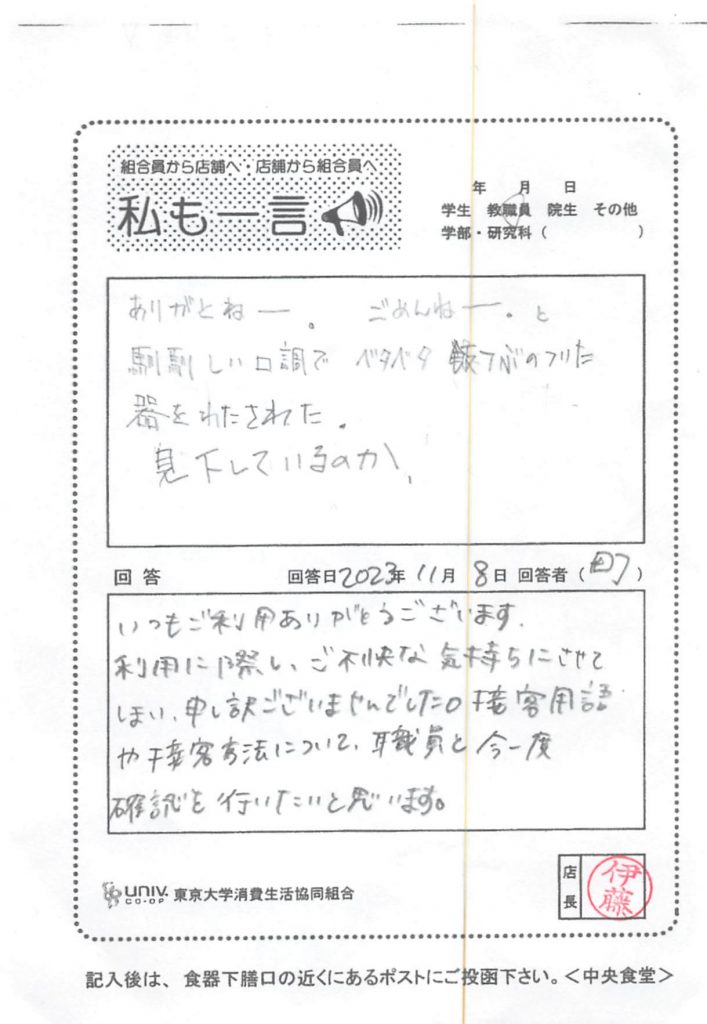 組合員から店舗へ・店舗から組合員へ
私も一言
年 月 日
学生 教職員 院生 その他
学部・研究科( )
ありがとねー。 ごめんねー。と
馴馴しい口調で ベタベタ 飯つぶのついた
器をわたされた。
見下しているのか、
回答 回答日2023年11月8日 回答者(町)
いつもご利用ありがとうございます。
利用に際し、ご不快な気持ちにさせて
しまい、申し訳ございませんでした。接客用語
や接客方法について、職員と今一度
確認を行いたいと思います。
UNIV. CO-OP 東京大学消費生活協同組合
店長 伊藤
記入後は、食器下膳口の近くにあるポストにご投函下さい。<中央食堂>